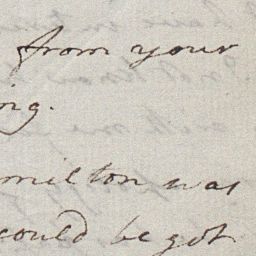 from your
ing.
milton was
could be got